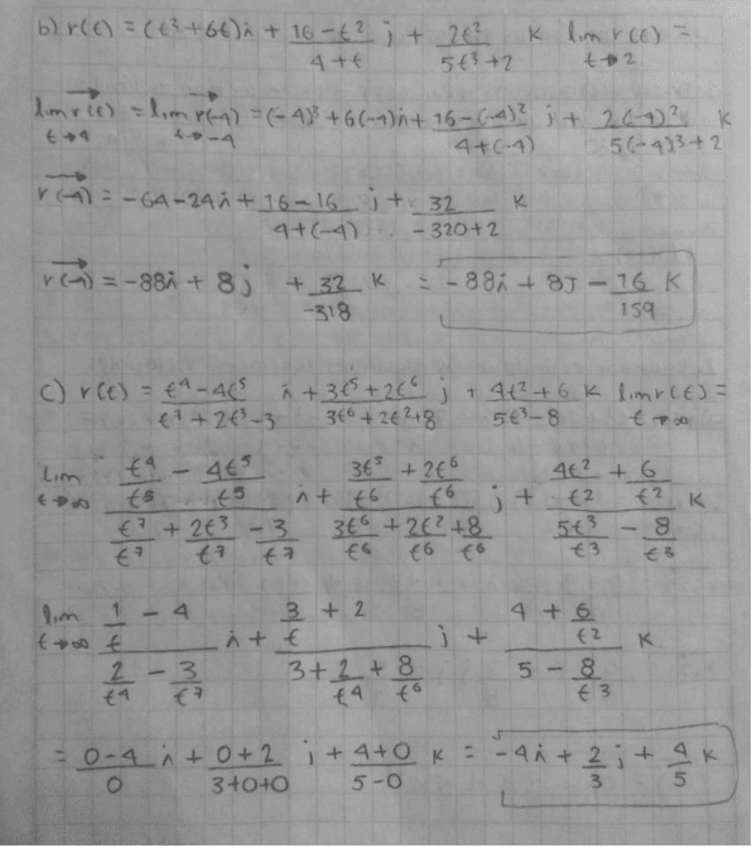 b) r(t) = (t³+6t)i + (16-t²)/(4+t) j + 2t²/(5t³+2) k lim r(t) = t→2
lim r(t) t→4 = lim r(-4) t→-4 = (-4)³+6(-4)i + (16-(-4)²)/(4+(-4)) j + 2(-4)²/(5(-4)³+2) k
r(-4) = -64-24i + (16-16)/(4+(-4)) j + 32/(-320+2) k
r(-4) = -88i + 8j + 32/-318 k = -88i + 8j - 16/159 k
c) r(t) = (t⁴-4t⁵)/(t⁷+2t³-3) i + (3t⁵+2t⁶)/(3t⁶+2t²+8) j + (4t²+6)/(5t³-8) k lim r(t) = t→∞
lim t→∞ (t⁴/t⁵ - 4t⁵/t⁵)/(t⁷/t⁷ + 2t³/t⁷ - 3/t⁷) i + (3t⁵/t⁶ + 2t⁶/t⁶)/(3t⁶/t⁶ + 2t²/t⁶ + 8/t⁶) j + (4t²/t² + 6/t²)/(5t³/t³ - 8/t³) k
lim t→∞ (1/t - 4)/(2/t⁴ - 3/t⁷) i + (3/t + 2)/(3 + 2/t⁴ + 8/t⁶) j + (4 + 6/t²)/(5 - 8/t³) k.
= (0-4)/0 i + (0+2)/(3+0+0) j + (4+0)/(5-0) k = -4i + 2/3 j + 4/5 k